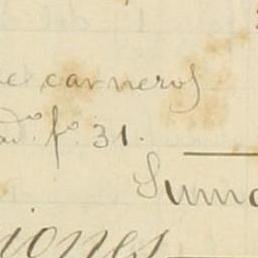 e carneros
ad.º f.º 31.
Suma
iones